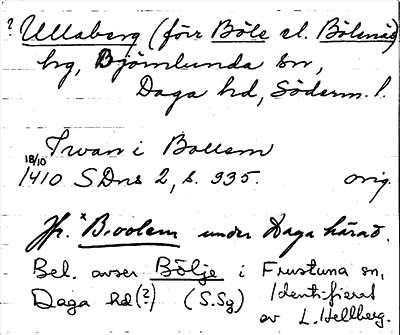 ? Ullaberg (förr Böle el. Bölsnäs)
hg, Björnlunda sn,
Daga hd, Söderm. l.
Iwan i Bollsm
18/10
1410 SDns 2, s. 335. orig.
Jfr. *Boolem under Daga härad.
Bel. avser Bölje i Frustuna sn,
Daga hd(?) (S.Sg) Identifierat
av L. Hellberg.